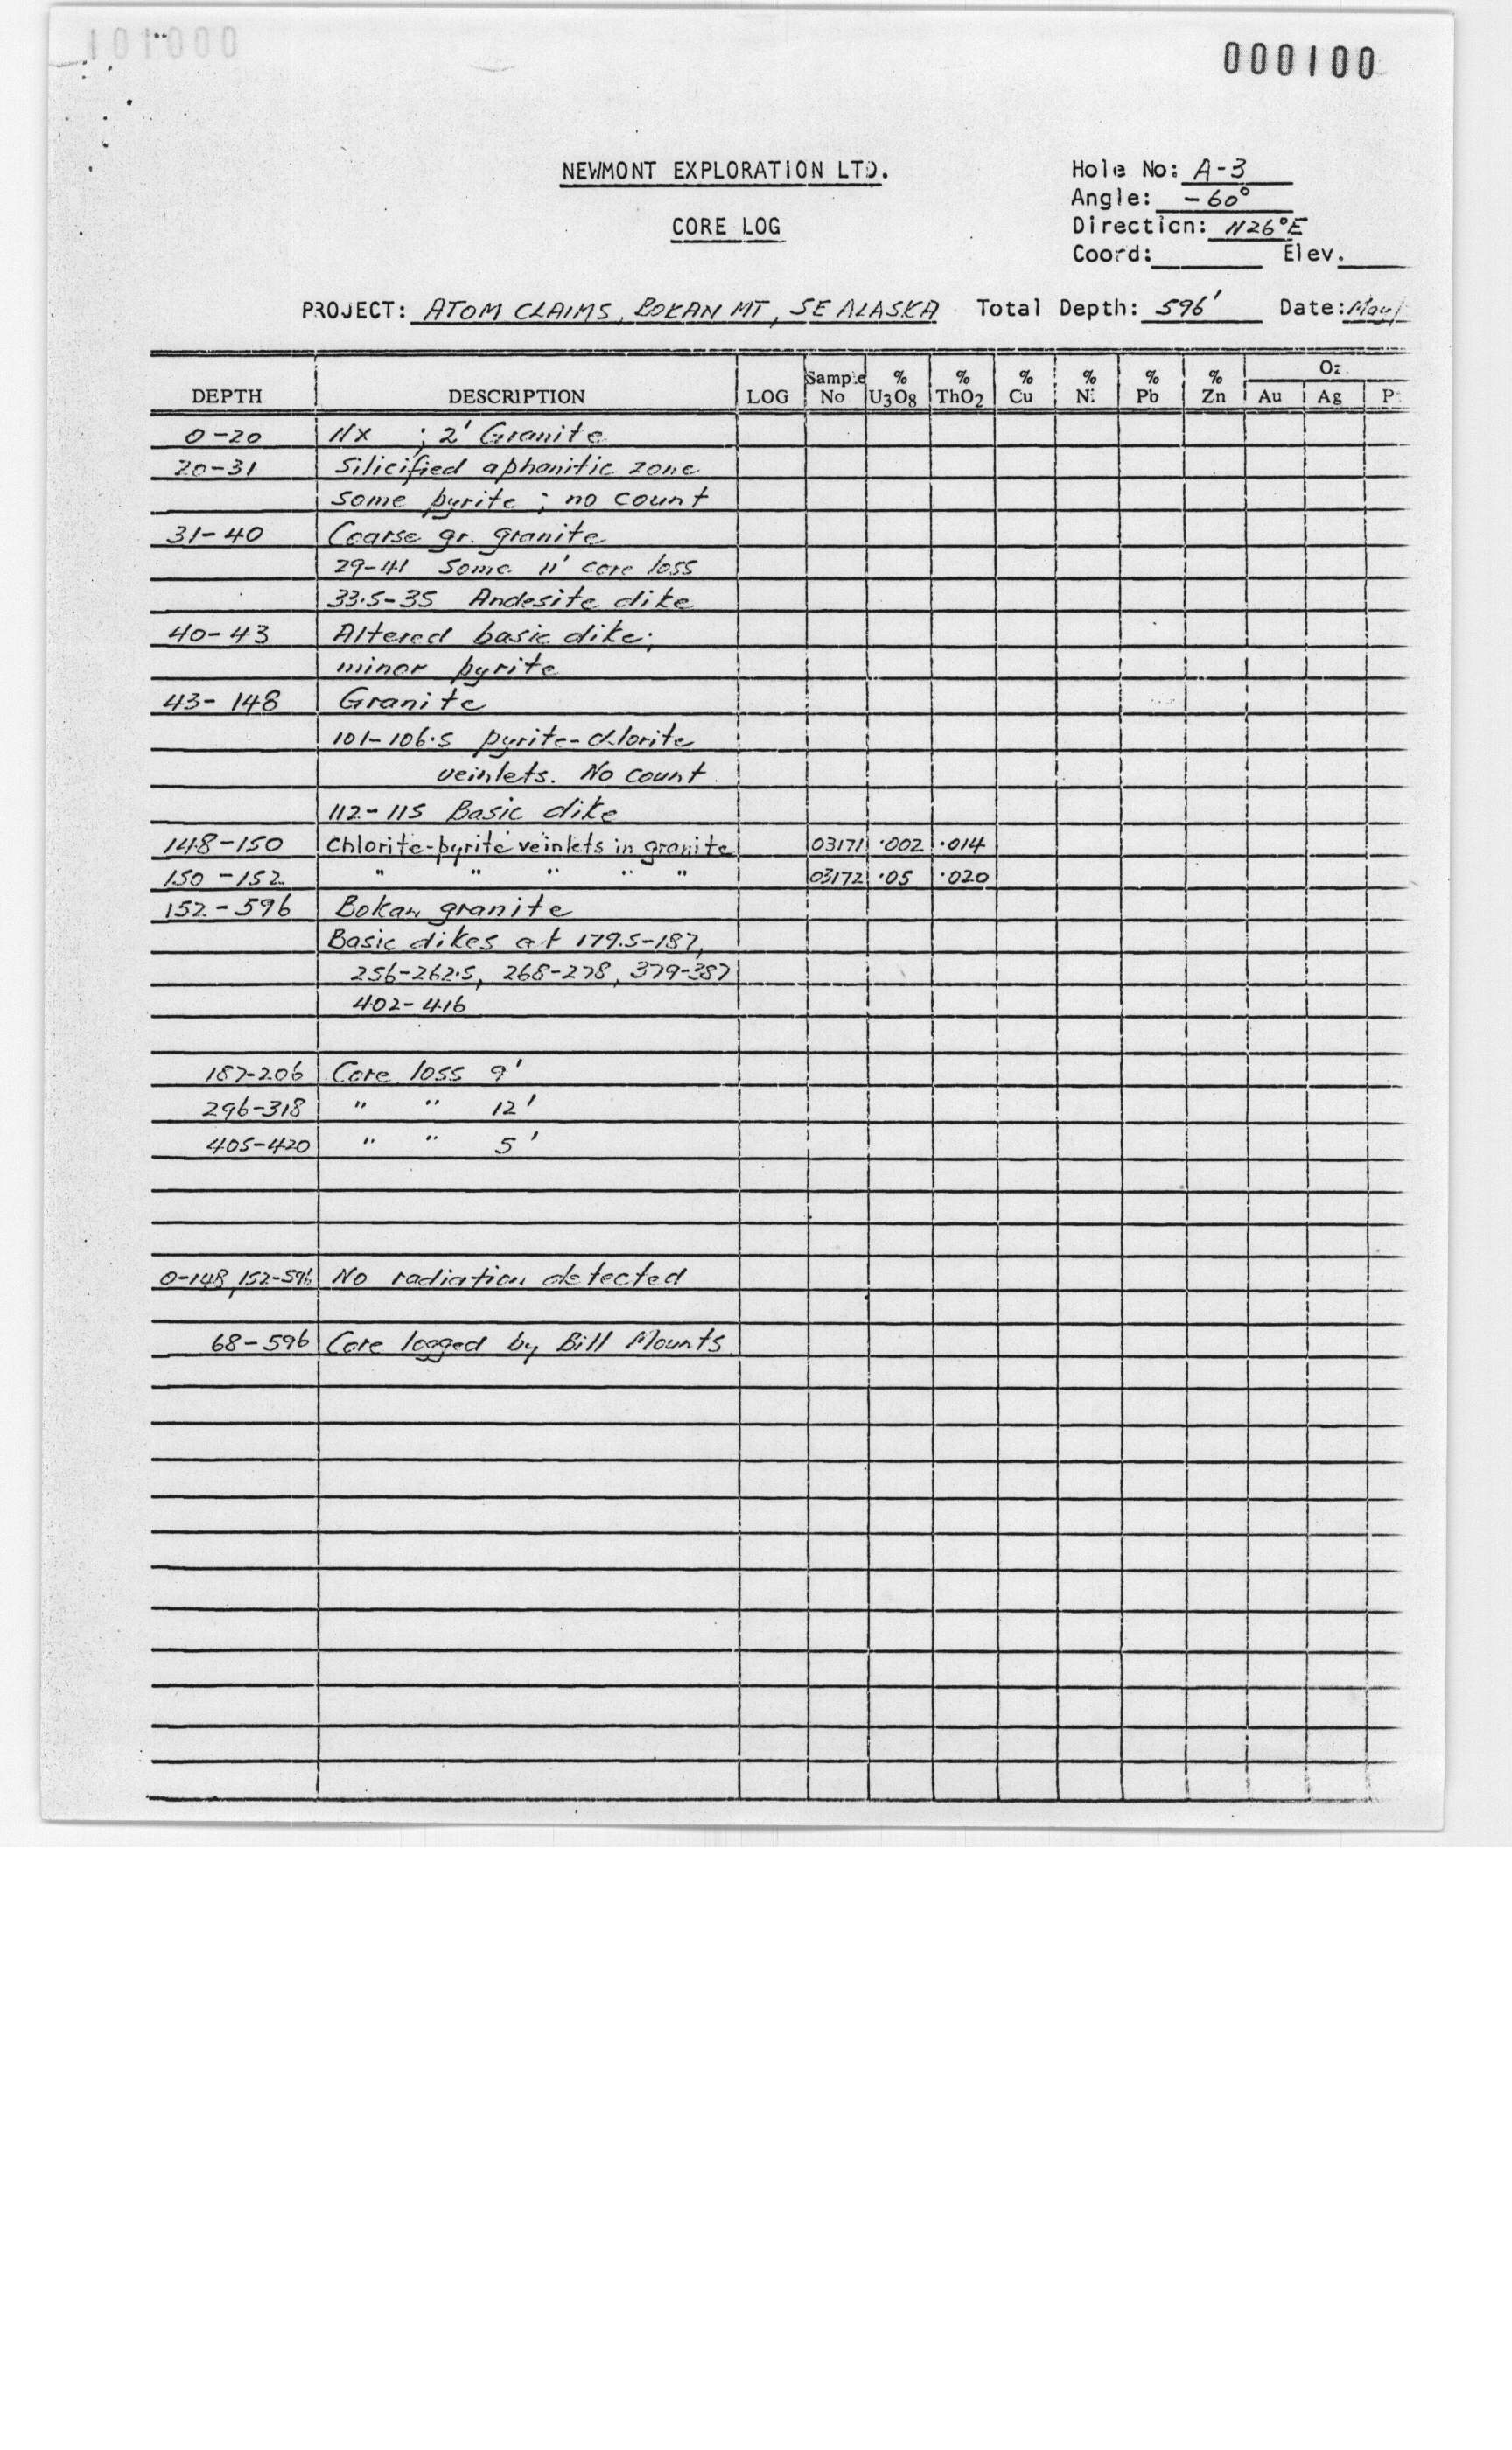 000101
000100
NEWMONT EXPLORATION LTD.
CORE LOG
Hole No: A-3
Angle: -60°
Direction: N26°E
Coord: Elev.
PROJECT: ATOM CLAIMS, BOKAN MT, SE ALASKA Total Depth: 596' Date: May/
DEPTH DESCRIPTION LOG Sample No % U3O8 % ThO2 % Cu % Ni % Pb % Zn Oz. Au Ag
0-20 NX ; 2' Granite
20-31 Silicified aphanitic zone
some pyrite ; no count
31-40 Coarse gr. granite
29-41 Some 11' core loss
33.5-35 Andesite dike
40-43 Altered basic dike;
minor pyrite
43-148 Granite
101-106.5 pyrite-chlorite
veinlets. No count.
112-115 Basic dike
148-150 Chlorite-pyrite veinlets in granite 03171 .002 .014
150-152 " " " " " 03172 .05 .020
152-596 Bokan granite
Basic dikes at 179.5-187,
256-262.5, 268-278, 379-387
402-416
187-206 Core loss 9'
296-318 " " 12'
405-420 " " 5'
0-148, 152-596 No radiation detected
68-596 Core logged by Bill Mounts